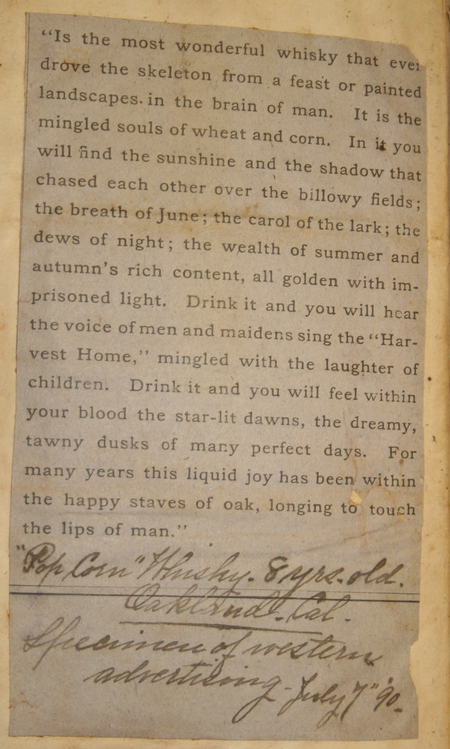 “Is the most wonderful whisky that ever
drove the skeleton from a feast or painted
landscapes. in the brain of man. It is the
mingled souls of wheat and corn. In it you
will find the sunshine and the shadow that
chased each other over the billowy fields;
the breath of June; the carol of the lark; the
dews of night; the wealth of summer and
autumn's rich content, all golden with im-
prisoned light. Drink it and you will hear
the voice of men and maidens sing the “Har-
vest Home,” mingled with the laughter of
children. Drink it and you will feel within
your blood the star-lit dawns, the dreamy,
tawny dusks of many perfect days. For
many years this liquid joy has been within
the happy staves of oak, longing to touch
the lips of man.”
"Pop Corn" Whisky - 8 yrs. old.
Oakland - Cal.
Specimen of western
advertising - July 7" '90 -